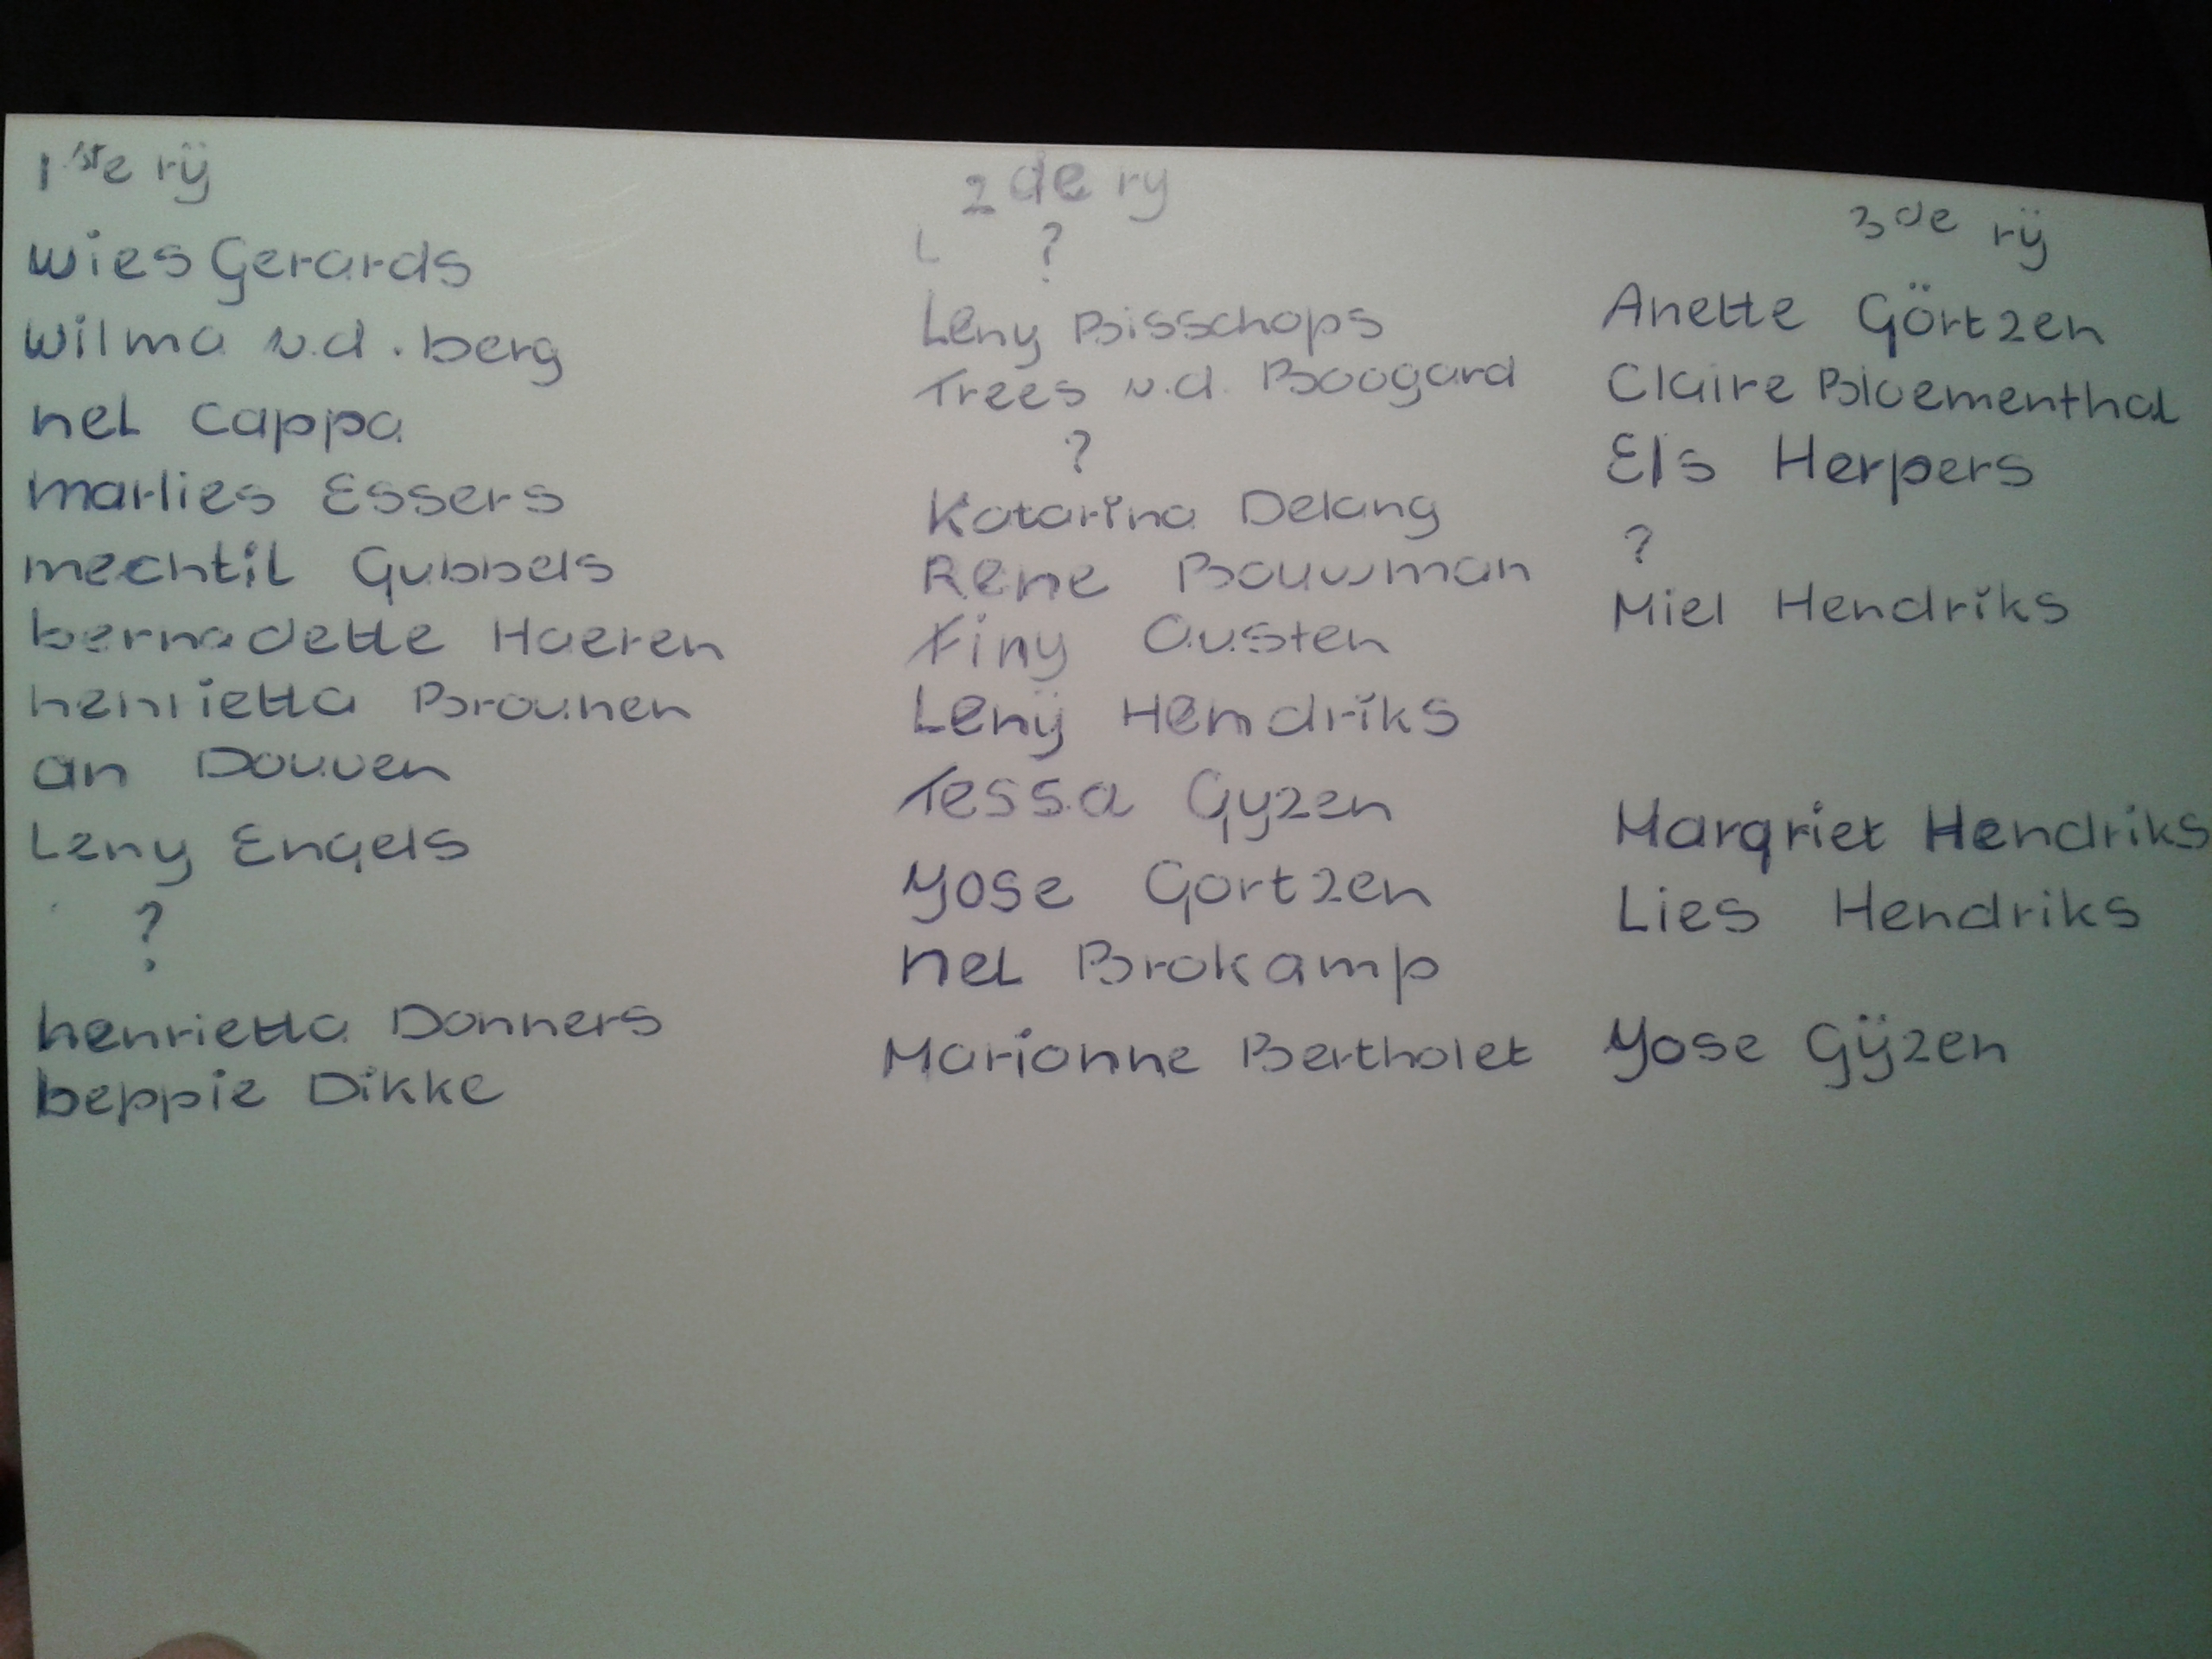 1ste rij
wies Gerards
wilma v.d. berg
nel Cappa
marlies Essers
mechtil Gubbels
bernadette Haeren
henrietta Brounen
an Douven
Leny Engels
?
henrietta Donners
beppie Dikke
2de ry
L ?
Leny Bisschops
Trees v.d. Boogard
?
Katarina Delang
Rene Bouwman
Finy Austen
Lenÿ Hendriks
Tessa Gyzen
Yose Gortzen
nel Brokamp
Marianne Bertholet
3de rij
Anette Görtzen
Claire Bloementhal
Els Herpers
?
Miel Hendriks
Margriet Hendriks
Lies Hendriks
Yose Gÿzen